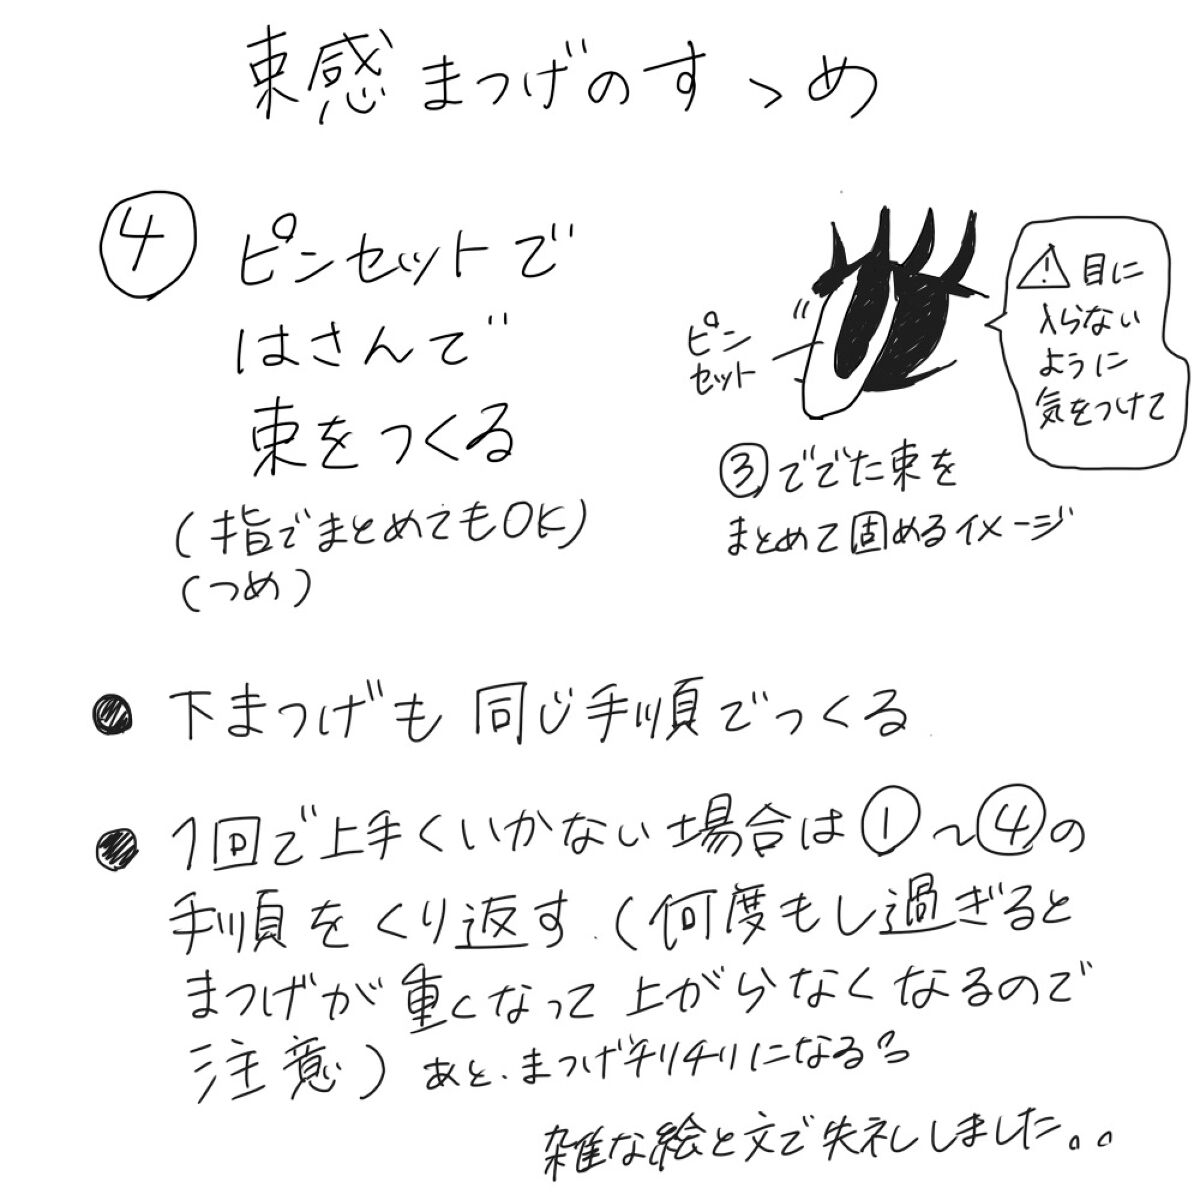 束感まつげのすゝめ
④ ピンセットで
はさんで
束をつくる
(指でまとめてもOK)
(つめ)
ピン
セット
⚠ 目に
入らない
ように
気をつけて
③ででた束を
まとめて固めるイメージ
● 下まつげも同じ手順でつくる
● 1回で上手くいかない場合は①～④の
手順をくり返す.(何度もし過ぎると
まつげが重くなって上がらなくなるので
注意) あと、まつげチリチリになる
雑な絵と文で失礼しました。。